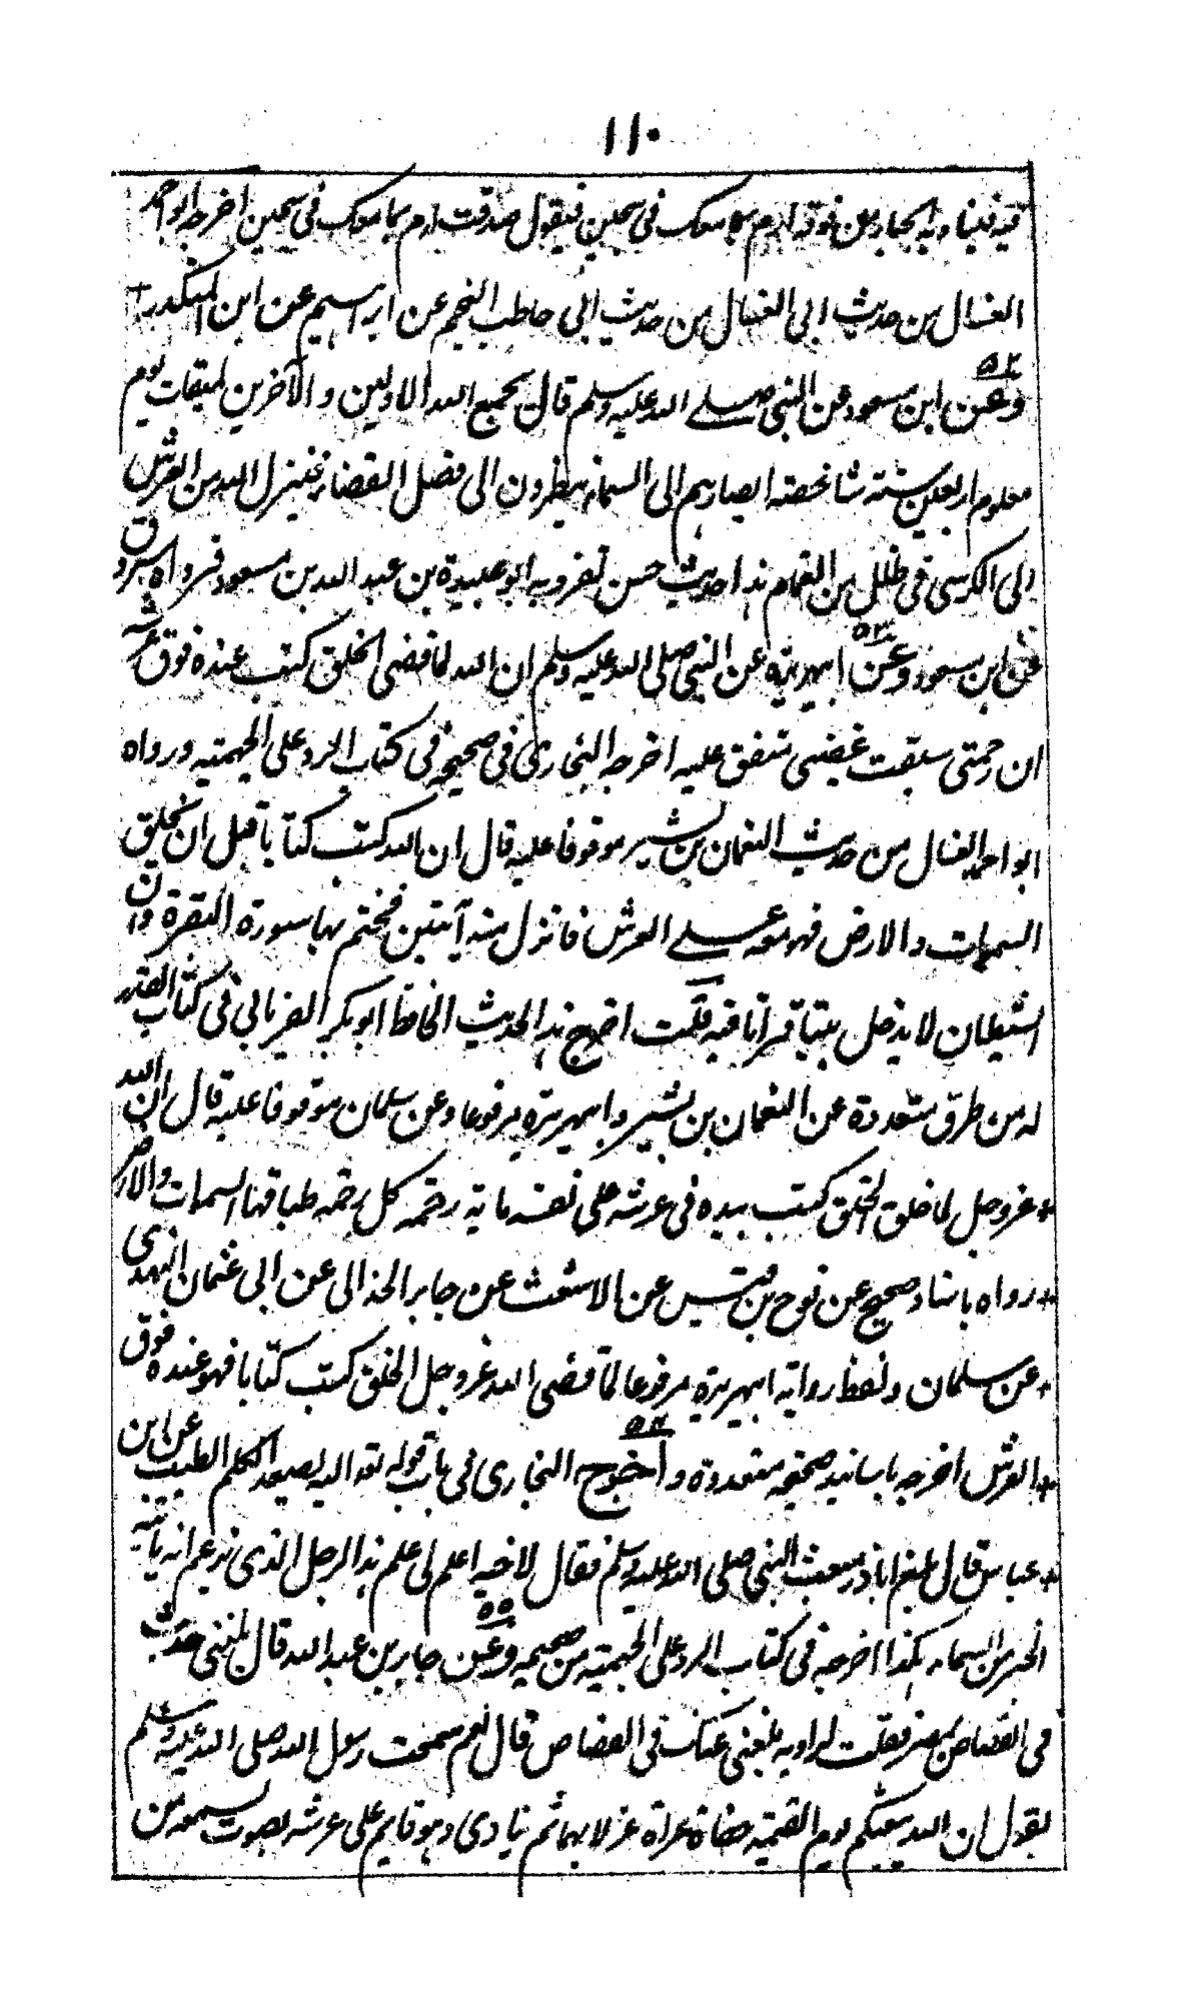 ١١٠
فيه فيناديه الجبار من فوقه ارم بما معك في سجين فيقول صدقت ارم بما معك في سجين اخرجه ابو احمد
العسال من حديث ابى العسال من حديث ابى حاطب النجم عن ابراهيم عن ابن المنكدر
٥٢
وعن ابن مسعود عن النبى صلے الله عليه وسلم قال يجمع الله الاولين و الآخرين لميقات يوم
معلوم اربعين سنة شاخصة ابصارهم الى السماء ينظرون الى فصل القضاء فينزل الله من العرش
الى الكرسى فى ظلل من الغمام هذا حديث حسن تفرد به ابو عبيدة بن عبد الله بن مسعود فرواه مسروق
٥٣
عن ابن مسعود وعن ابيهريرة عن النبى صلى الله عليه وسلم ان الله لما قضى الخلق كتب عنده فوق عرشه
ان رحمتى سبقت غضبى متفق عليه اخرجه البخارى فى صحيحه فى كتاب الرد على الجهمية ورواه
ابو احمد العسال من حديث النعمان بن بشير موقوفا عليه قال ان الله كتب كتابا قبل ان يخلق
السموات والارض فهو معه علے العرش فانزل منه آيتين فختم بهما سورة البقرة وان
الشيطان لا يدخل بيتا قرأتا فيه قلت اخرج هذا الحديث الحافظ ابو بكر الفريابى فى كتاب القدر
له من طرق متعددة عن النعمان بن بشير وابيهريرة مرفوعا وعن سلمان موقوفا عليه قال ان الله
عزوجل لما خلق الخلق كتب بيده فى عرشه على نفسه ماية رحمة كل رحمة طباقها السموات والارض
رواه باسناد صحيح عن نوح بن قيس عن الاشعث عن جابر الحذانى عن ابى عثمان النهدى
عن سلمان ولفظ رواية ابيهريرة مرفوعا لما قضى الله عزوجل الخلق كتب كتابا فهو عنده فوق
٥٤
العرش اخرجه باسانيد صحيحة متعددة واخرج البخارى فى باب قوله تعه اليه يصعد الكلم الطيب عن ابن
عباس قال بلغ اباذر مبعث النبى صلى الله عليه وسلم فقال لاخيه اعلم لى علم هذا الرجل الذى يزعم انه ياتيه
٥٥
الخبر من السماء هكذا اخرجه فى كتاب الرد على الجهمية من صحيحه وعن جابر بن عبد الله قال بلغنى حديث
فى القصاص بمصر فقلت لراويه بلغنى عنك فى القصاص قال نعم سمعت رسول الله صلى الله عليه وسلم
يقول ان الله يبعثكم يوم القيمة حفاة عراة غرلا بهما ثم ينادى وهو قايم على عرشه بصوت يسمعه من